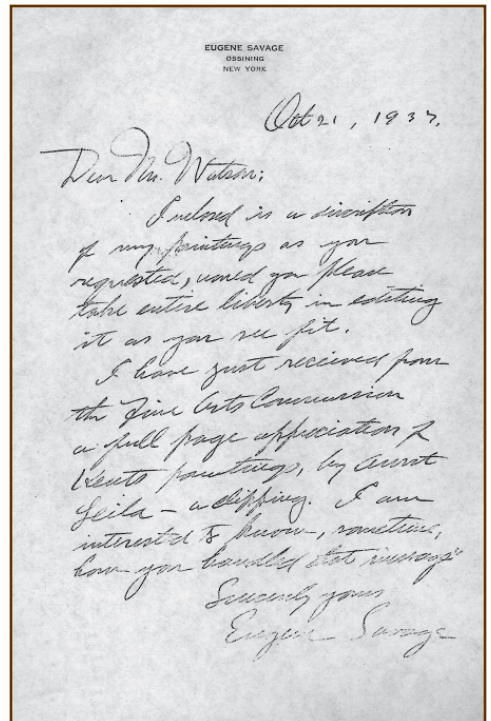 EUGENE SAVAGE
OSSINING
NEW YORK
Oct 21, 1937.
Dear Mr. Watson:
Inclosed is a discription
of my paintings as you
requested, would you please
take entire liberty in editing
it as you see fit.
I have just recieved from
the Fine Arts Commission
a full page appreciation of
Kents paintings, by Aunt
Leila – a clipping. I am
interested to know, sometime,
how you handled that message"
Sincerely yours
Eugene Savage